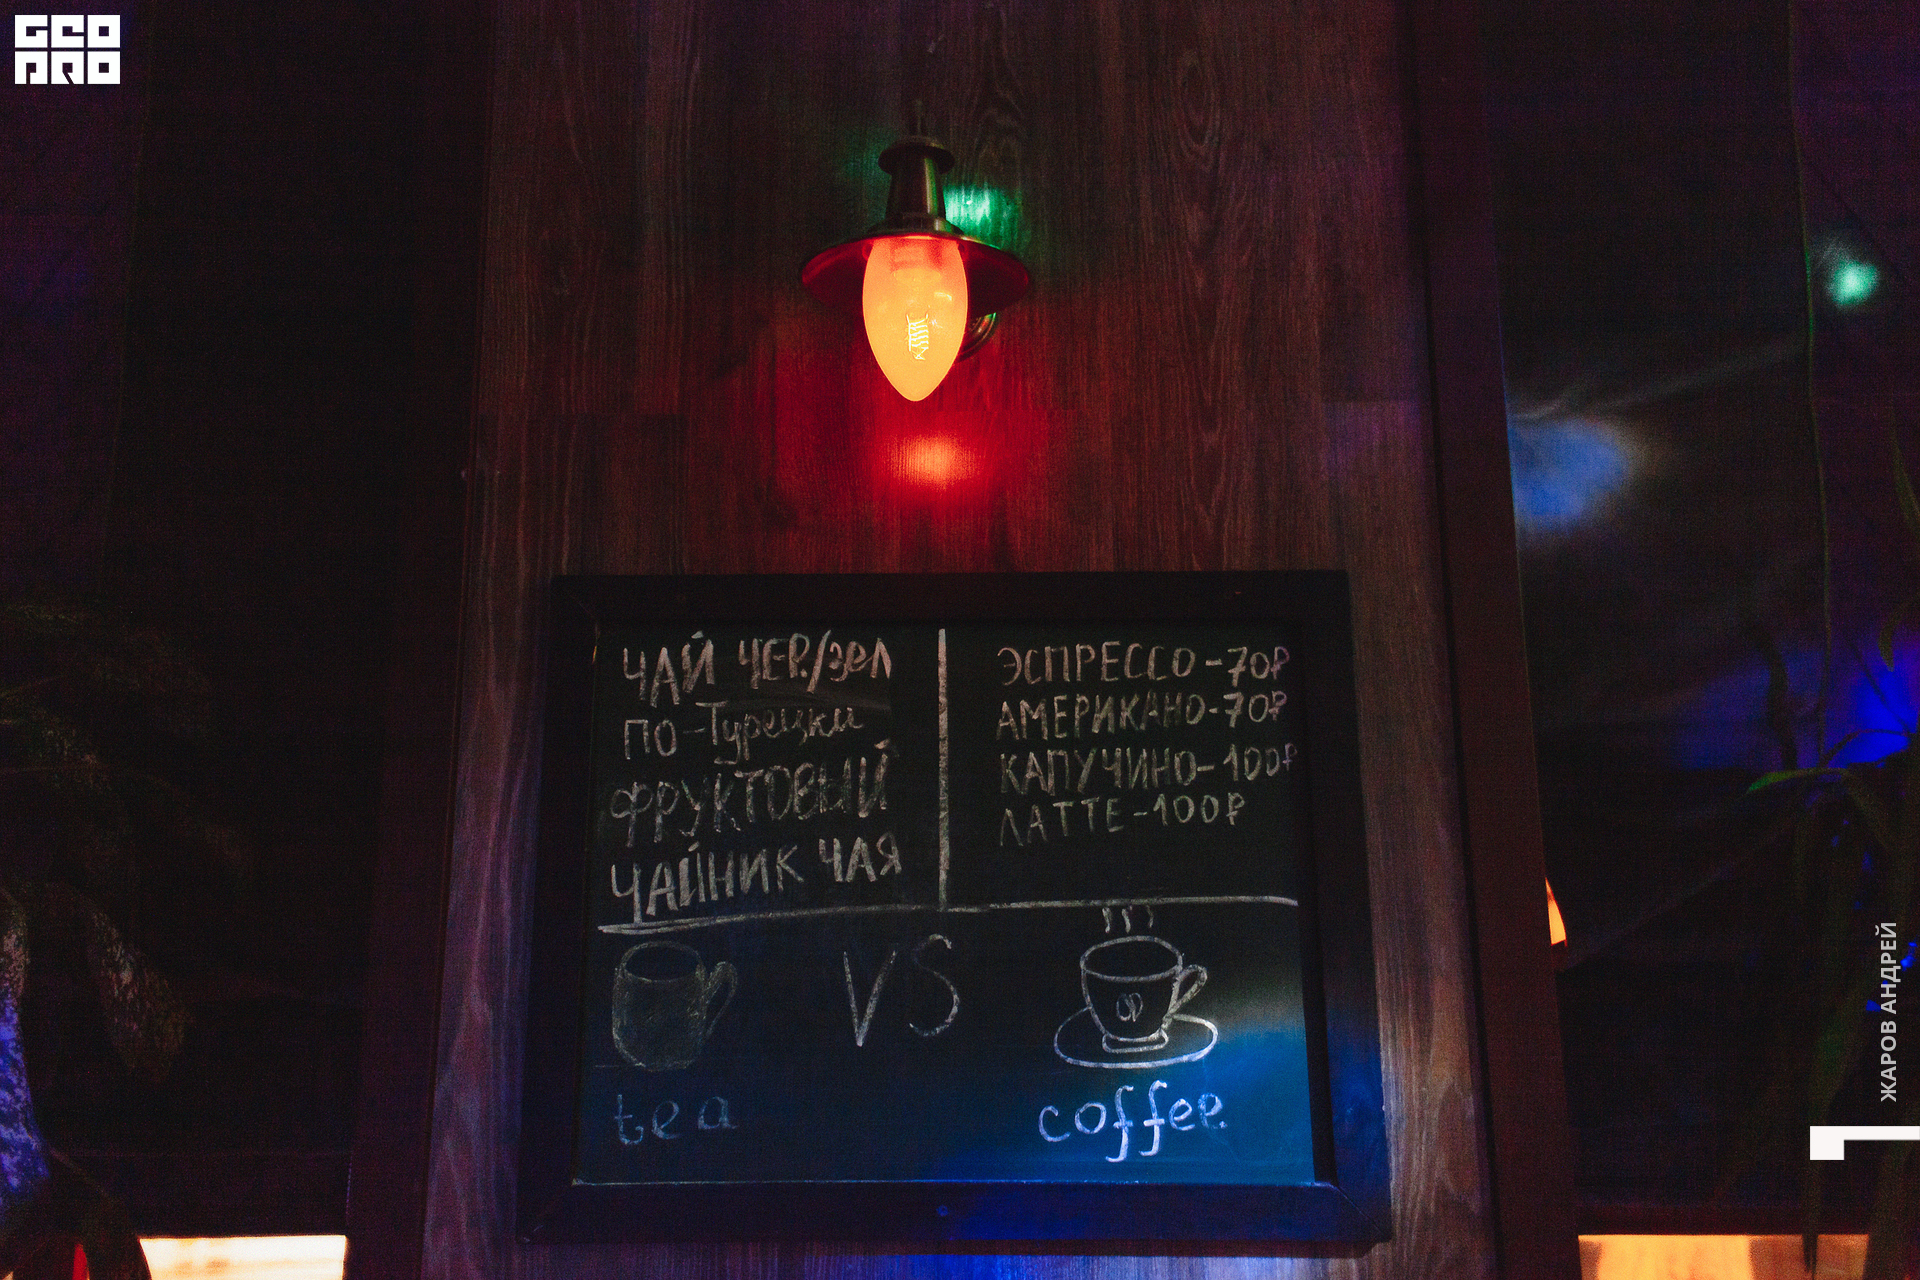 GEO
PRO
ЧАЙ ЧЕР./зел
ПО-Турецки
ФРУКТОВЫЙ
ЧАЙНИК ЧАЯ
ЭСПРЕССО-70₽
АМЕРИКАНО-70₽
КАПУЧИНО-100₽
ЛАТТЕ-100₽
VS
tea
coffee
ЖАРОВ АНДРЕЙ